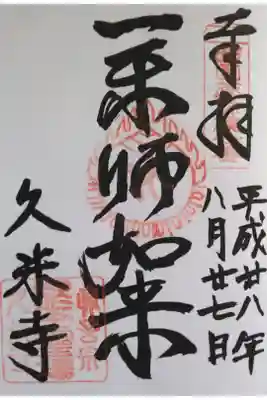 奉拝
平成廿八年
八月廿七日
薬師如来
久米寺